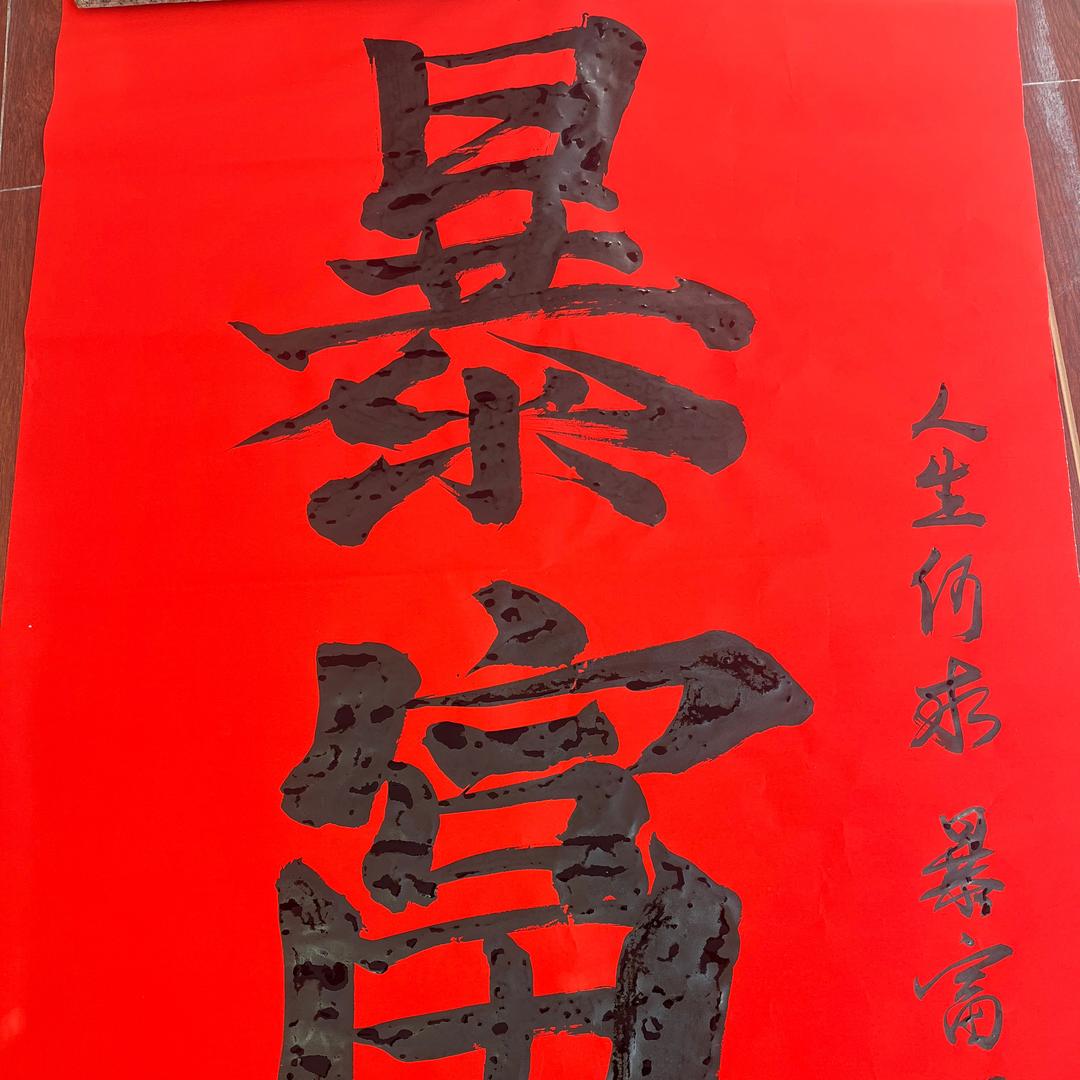 暴富
人生何求 暴富